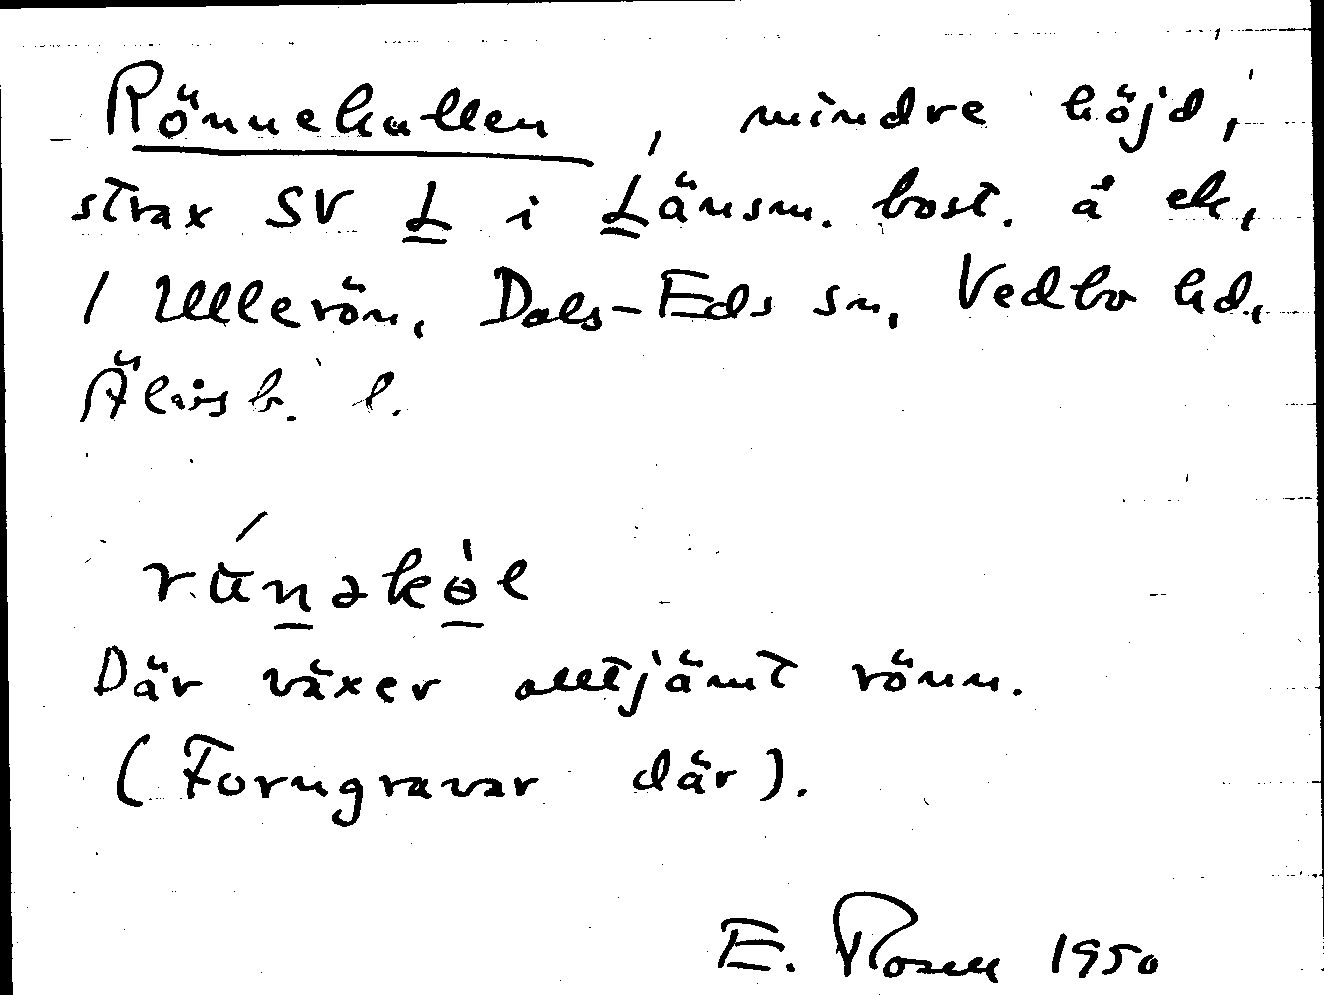 Rönnekullen, mindre höjd,
strax SV L i Länsm. bost. å ek,
/ Ullerön, Dals-Eds sn, Vedbo hd.,
Älvsb. l.
Där växer alltjämt rönn.
(Forngravar där).
E. Rosell 1950